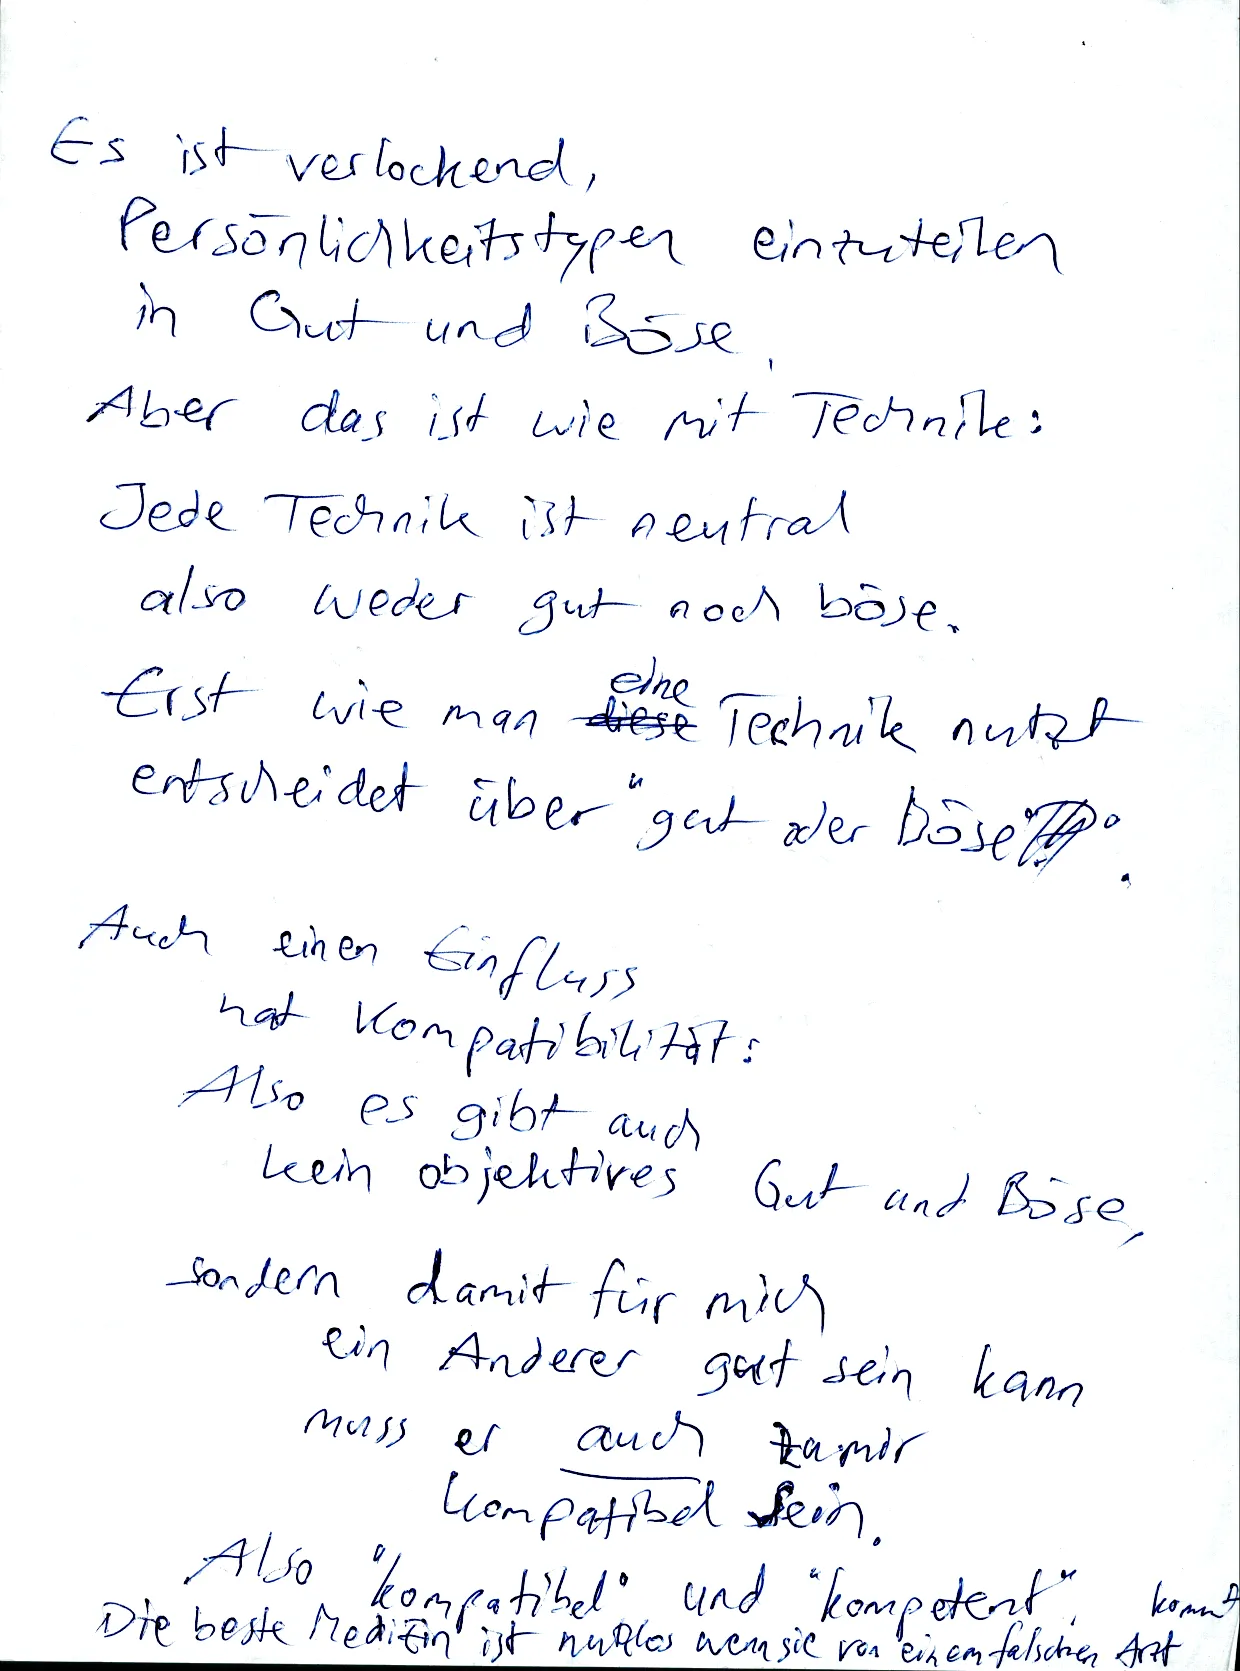 Es ist verlockend,
Persönlichkeitstypen einzuteilen
in Gut und Böse,
Aber das ist wie mit Technik:
Jede Technik ist neutral
also weder gut noch böse.
eine
Erst wie man diese Technik nutzt
entscheidet über "gut oder Böse".
Auch einen Einfluss
hat Kompatibilität:
Also es gibt auch
kein objektives Gut und Böse,
sondern damit für mich
ein Anderer gut sein kann
muss er auch zu mir
kompatibel sein.
Also "kompatibel" und "kompetent", kommt
Die beste Medizin ist nutzlos wenn sie von einem falschen Arzt